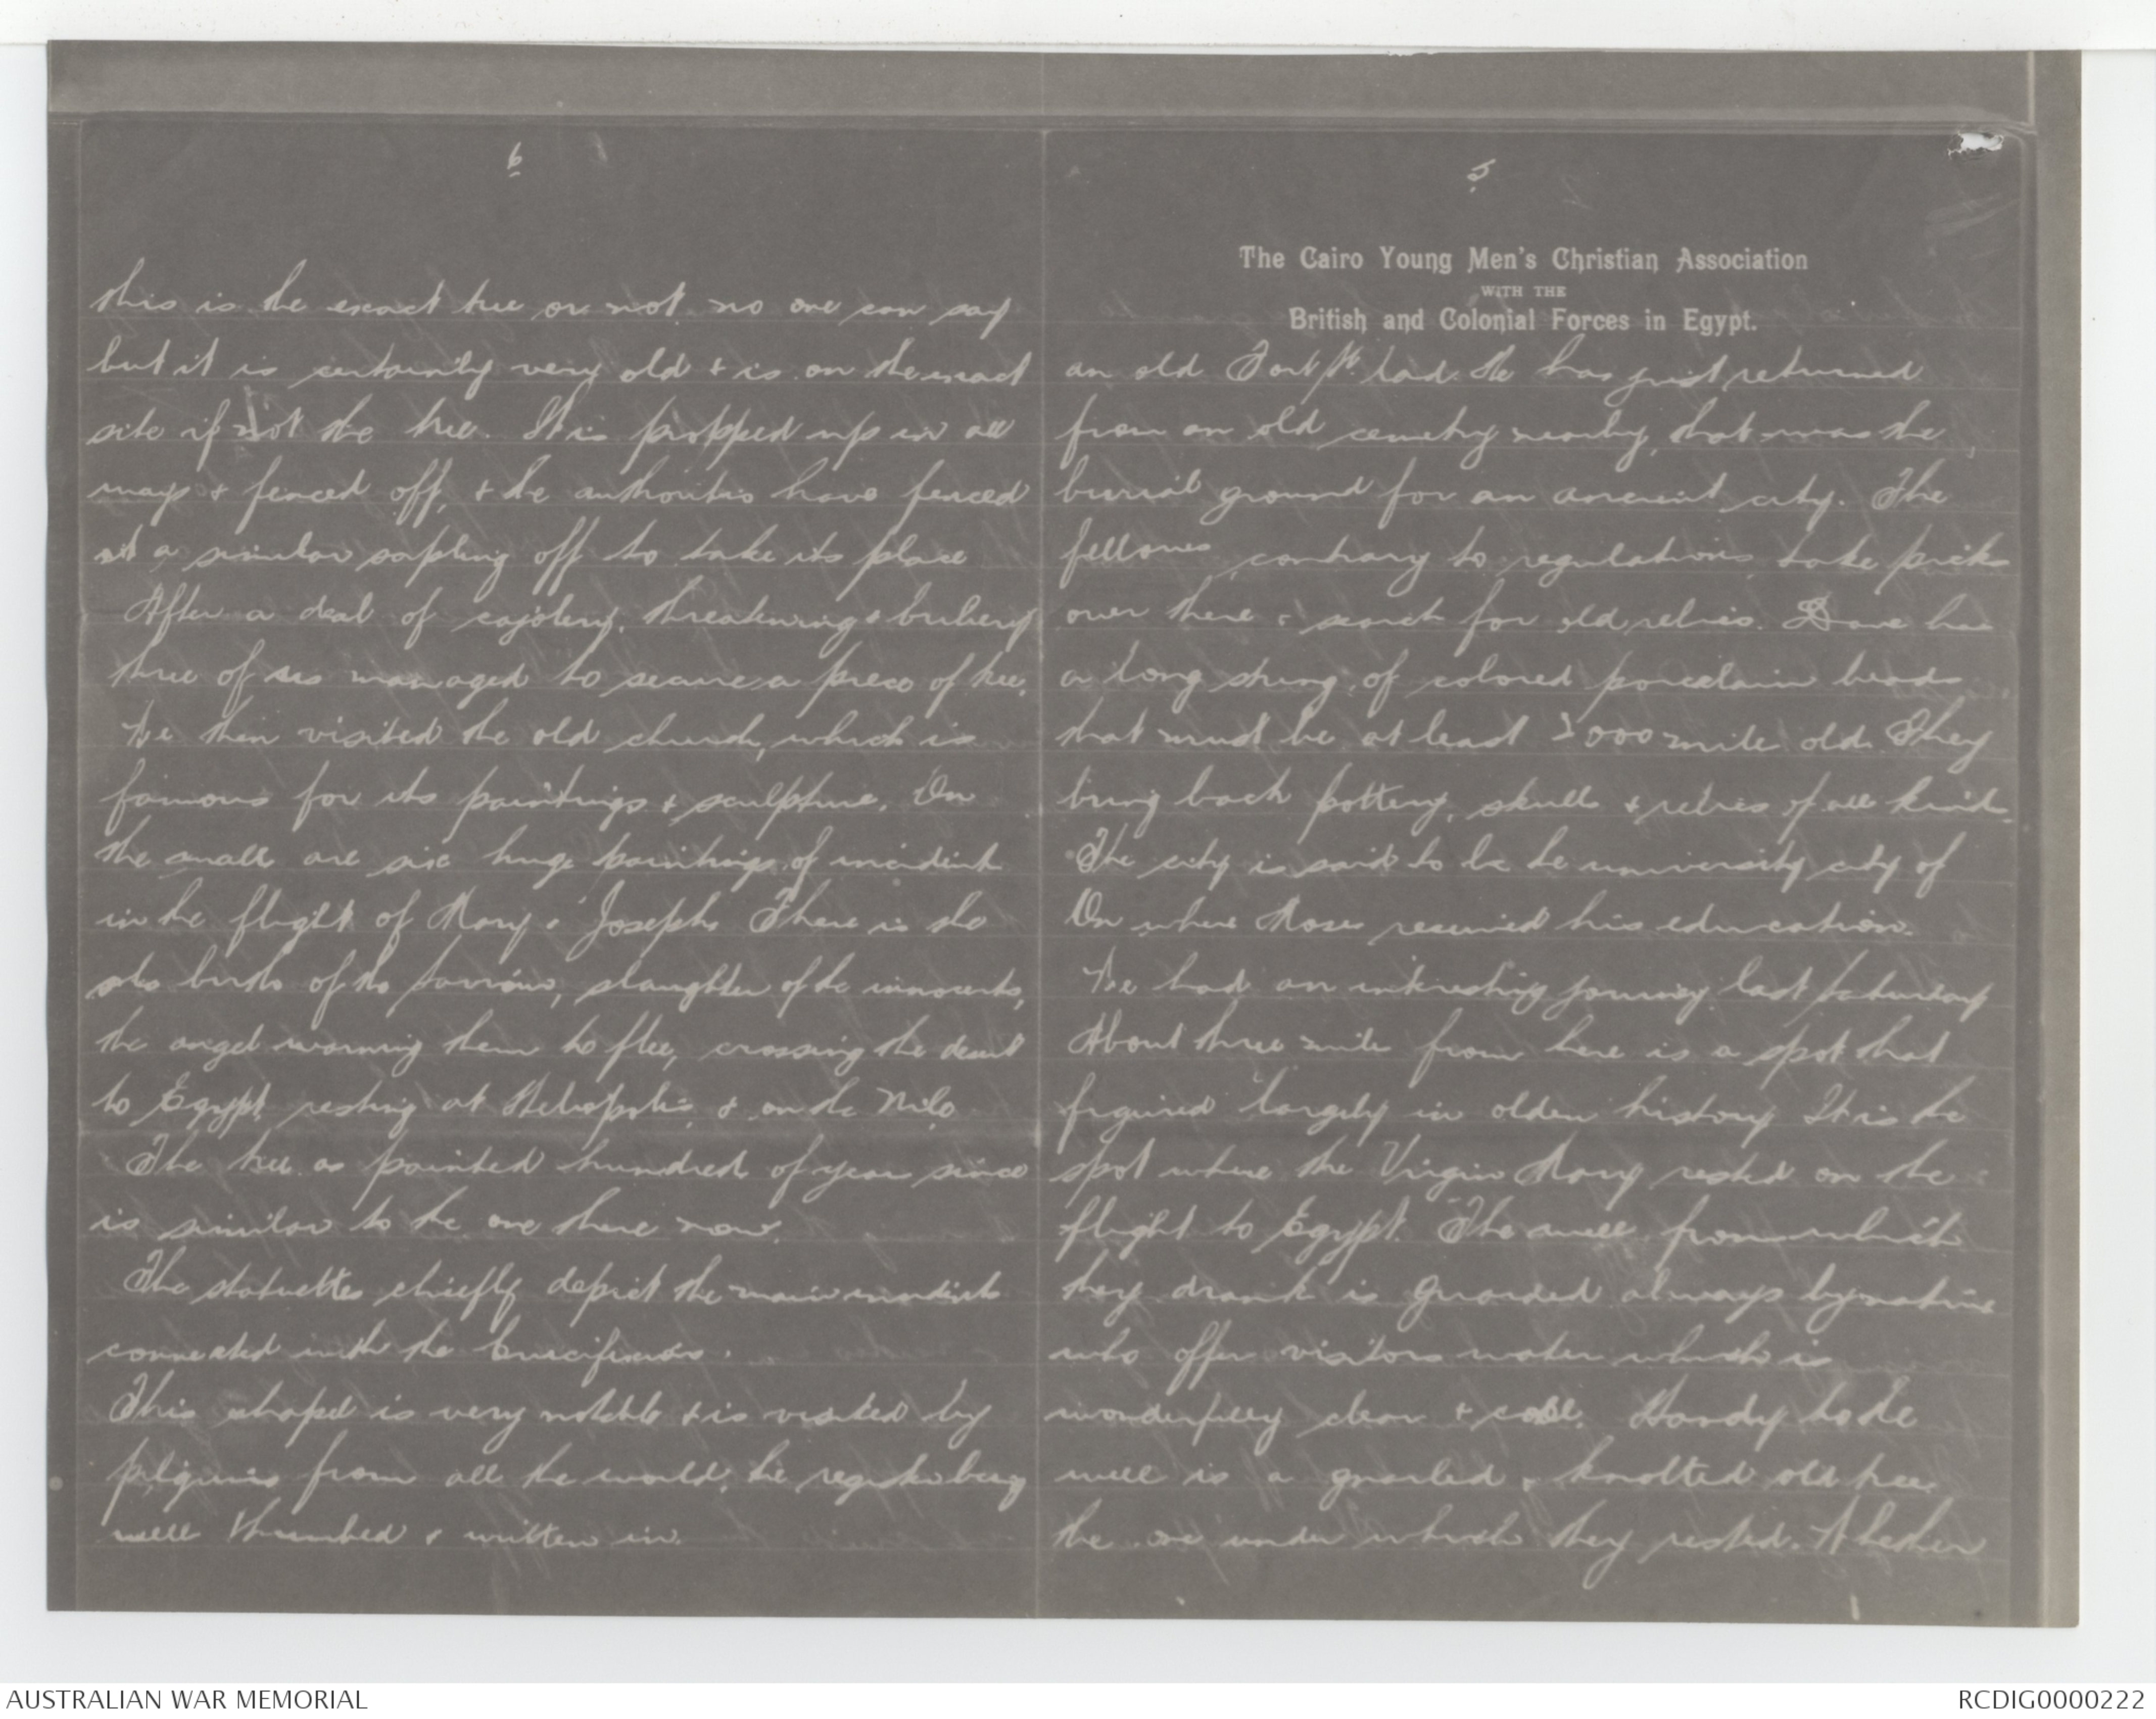 5
The Cairo Young Men's Christian Association
WITH THE
British and Colonial Forces in Egypt.
an old Fort St. lad. He has just returned
from an old cemetry nearby, that was the
burial ground for an ancient city. The
fellows, contrary to regulations, take picks
over there & search for old relics. Dave has
a long string of colored porcelain beads
that must be at least 2000 mile old. They
bring back pottery, skulls & relics of all kinds.
The city is said to be the university city of
On where Moses received his education.
We had an interesting journey last Saturday
About three mile from here is a spot that
figured largely in olden history It is the
spot where the Virgin Mary rested on the
flight to Egypt. The well from which
they drank is guarded always by natives
who offer visitors water which is
wonderfully clear & cool. Handy to the
well is a gnarled & knotted old tree
the one under which they rested. Whether
6
this is the exact tree or not no one can say
but it is certainly very old & is on the exact
site if not the tree. It is propped up in all
ways & fenced off, & the authorities have fenced
a similar sapling off to take its place
After a deal of cajolery, threatening & bribery
three of us managed to secure a piece of tree.
We then visited the old church, which is
famous for its paintings & sculpture. On
the walls are six huge paintings of incidents
in the flight of Mary & Joseph. There is the
birth of the saviour, slaughter of the innocents,
the angel warning them to flee, crossing the desert
to Egypt resting at Heliopolis, & on the Nile.
The tree as painted hundreds of years since
is similar to the one there now.
The statuettes chiefly depict the main incidents
connected with the Crucifixion.
This chapel is very notable & is visited by
pilgrims from all the world, the register being
well thumbed & written in.
AUSTRALIAN WAR MEMORIAL
RCDIG0000222